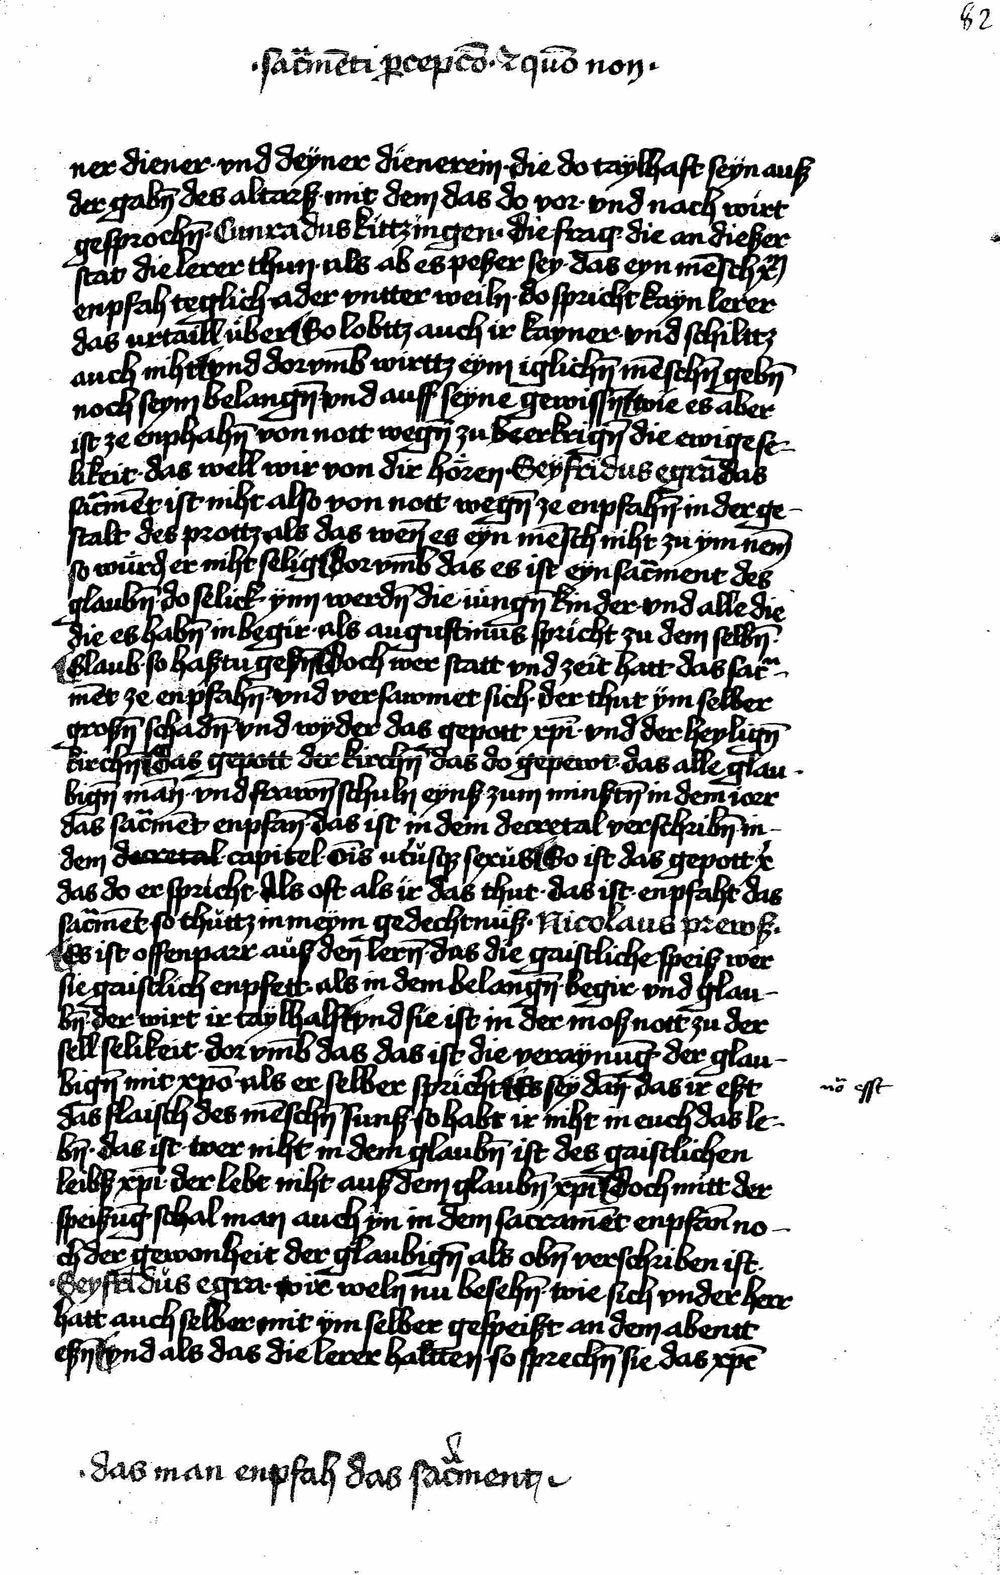 82
·sac̄mēti ꝑcepcō· ⁊ quō non·
ner diener· vnd deÿner dienerein· die do taÿlhaft seÿn auß
der gabn̄ des altarß· mit dem das do vor· vnd nach wirt
gesprochn̄· Cunradus kittzingen· die frag· die an dießer
stat die lerer thun· als ab es peßer sey· das eyn mēsch
enpfah teglich· ader vntter weiln· do spricht kayn lerer
das urtaill über So lobttz auch ir kayner· vnd schilttz
auch niht vnd dorvmb wirttz eym iglichn̄ mēschn̄ gebn̄
noch seym belangn̄· vnd auff seyne gewissn̄ wie es aber
ist ze enphahn̄ von nott wegn̄ zu beerkrign̄ die ewige se-
likeit· das well wir von dir hören· Seyfridus egra das
sac̄mēt ist niht also von nott wegn̄ ze enpfahn̄· in der ge-
stalt des prottz· als das wen̄ es eyn mēsch niht zu ym nem
so würd er niht selig Dorvmb das es ist eyn sac̄ment des
glaubn̄· do selick· ynn werdn̄ die iüngn̄ kinder· vnd alle die
die es habn̄ in begir· als augustinus spricht zu dem selbn̄
Glaub· so hastu Doch wer statt vnd zeit hatt das sac̄-
mēt ze enpfahn̄· vnd versawmet sich· der thut ÿm selber
großn̄ schadn̄· vnd wyder das gepott xp̄i· vnd der heylign̄
kirchn̄ Das gepott der kirchn̄ das do gepewt· das alle glau-
bign̄ man̄· vnd frawn̄ schuln eynß zum minstn̄ in dem iorr
das sac̄mēt enpfan̄· das ist in dem decretal verschribn̄· in-
dem decretal· capitel· ōis ut̉usqꝫ sexus So ist das gepott·
das do er spricht· Als oft als ir das thut· das ist· enpfaht das
sac̄mēt· so thüttz in meym gedechtnüß· Nicolaus prewß·
Es ist offenparr auß den̄ lern̄· das die gaistliche speiß wer
sie gaistlich enpfett· als in dem belangn̄· begir· vnd glau-
bn̄· der wirt ir taylhaft vnd sie ist in der moß nott zu der
sell selikeit· dorvmb das das ist die veraynūg· der glau-
bign̄ mit xp̄o· als er selber spricht Es sey dan̄ das ir eßt
das flaisch des mēschn̄ sunß· so habt ir niht in euch das le-
bn̄· das ist· wer niht in dem glaubn̄ ist des gaistlichen
leibß xp̄i· der lebt niht auß dem glaubn̄ xp̄i Doch mitt der
speißūg· schal man auch ÿn in dem sacramēt enpfan̄ no-
ch der gewonheit der glaubign̄ als obn̄ verschriben ist·
·Seyfridus egra· wir weln nu besehn̄· wie sich vnder herr
hatt auch selber mit ÿm selber gespeißt an dem abentt
eßn̄ vnd als das die lerer haltten· so sprechn̄ sie das xp̄c
nō esst
·das man enpfah das sac̄ment